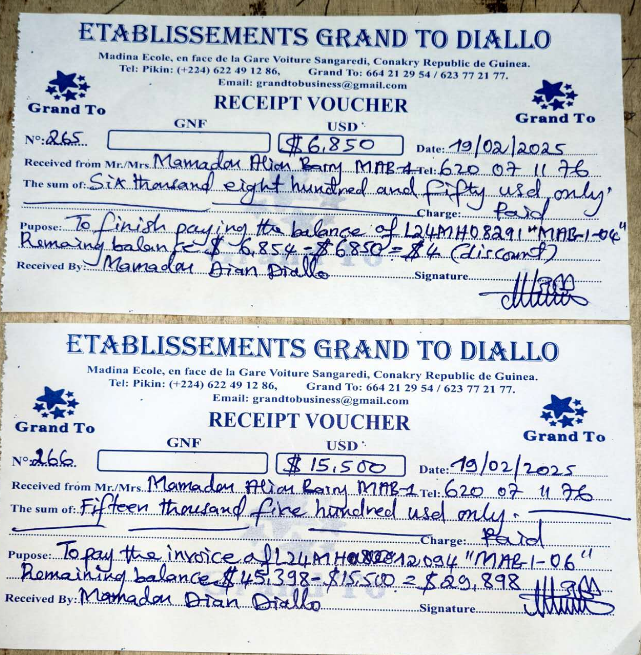 ETABLISSEMENTS GRAND TO DIALLO
Madina Ecole, en face de la Gare Voiture Sangaredi, Conakry Republic de Guinea.
Tel: Pikin: (+224) 622 49 12 86, Grand To: 664 21 29 54 / 623 77 21 77.
Email: grandtobusiness@gmail.com
Grand To RECEIPT VOUCHER Grand To
GNF USD
N°: 265 $ 6,850 Date: 19/02/2025
Received from Mr./Mrs. Mamadou Alion Barry MAB-1 Tel: 620 07 11 76
The sum of: Six thousand eight hundred and fifty usd only.
Charge: Paid
Pupose: To finish paying the balance of L24MH08291 "MAB-1-04"
Remaining balance $ 6.854 - $6850 = $4 (discount)
Received By: Mamadou Dian Diallo Signature
ETABLISSEMENTS GRAND TO DIALLO
Madina Ecole, en face de la Gare Voiture Sangaredi, Conakry Republic de Guinea.
Tel: Pikin: (+224) 622 49 12 86, Grand To: 664 21 29 54 / 623 77 21 77.
Email: grandtobusiness@gmail.com
Grand To RECEIPT VOUCHER Grand To
GNF USD
N°: 266 $ 15,500 Date: 19/02/2025
Received from Mr./Mrs. Mamadou Alion Barry MAB-1 Tel: 620 07 11 76
The sum of: Fifteen thousand five hundred usd only.
Charge: Paid
Pupose: To pay the invoice of "MAB1-06"
Remaining balance $45,398 - $15,500 = $29,898
Received By: Mamadou Dian Diallo Signature